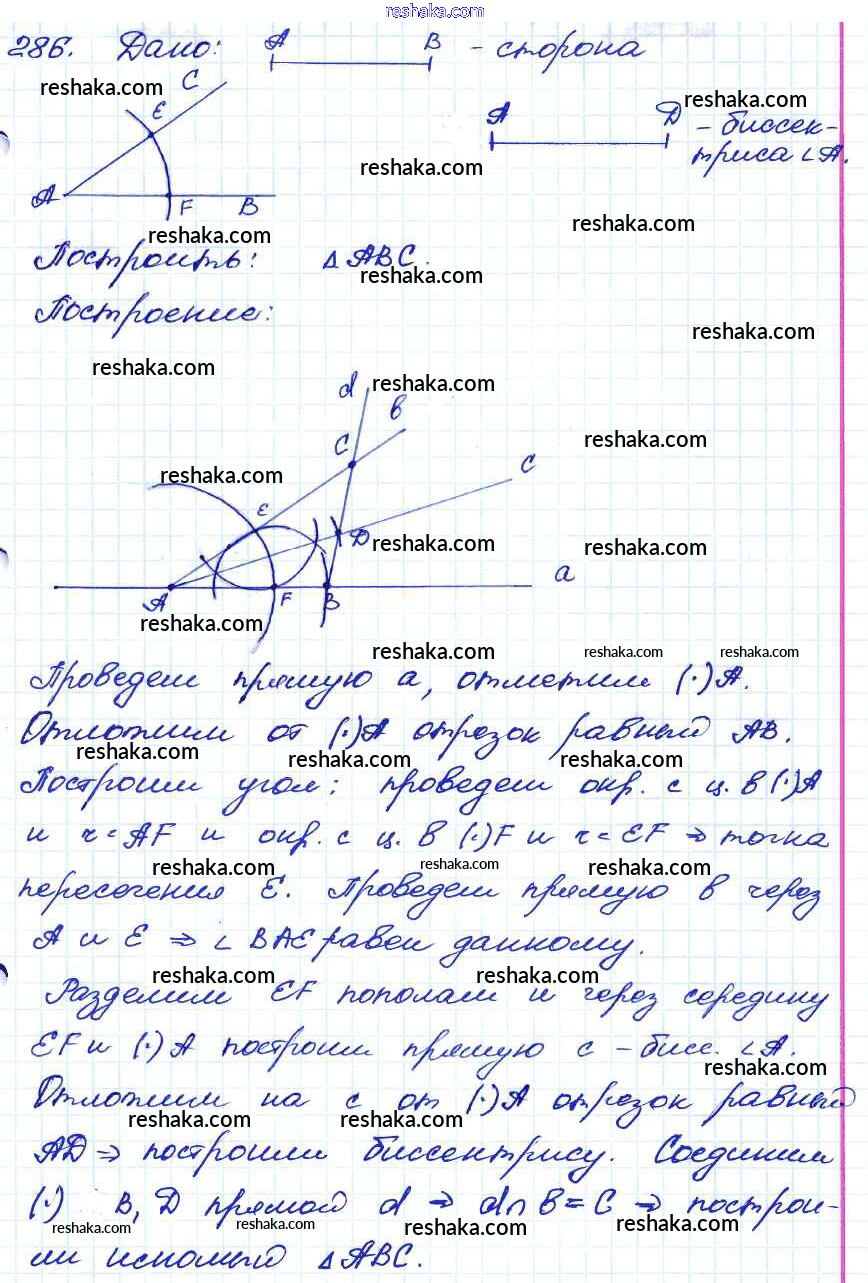 reshaka.com
286. Дано: A B - сторона
reshaka.com C
E
A D - биссек-
reshaka.com
триса ∠A.
reshaka.com
A F B
reshaka.com
reshaka.com
Построить: △ABC.
reshaka.com
Построение:
reshaka.com
reshaka.com
d reshaka.com
b
C reshaka.com
reshaka.com c
E
D reshaka.com reshaka.com
A F B a
reshaka.com
reshaka.com reshaka.com reshaka.com
Проведем прямую a, отметим (·)A.
Отложим от (·)A отрезок равный AB.
reshaka.com reshaka.com reshaka.com
Построим угол: проведем окр. с ц. в (·)A
и r=AF и окр. с ц. в (·)F и r=EF ⇒ точка
reshaka.com reshaka.com reshaka.com
пересечения E. Проведем прямую b через
A и E ⇒ ∠BAE равен данному.
reshaka.com reshaka.com
Разделим EF пополам и через середину
EF и (·)A построим прямую c - бисс. ∠A.
reshaka.com
Отложим на c от (·)A отрезок равный
reshaka.com reshaka.com
AD ⇒ построим биссектрису. Соединим
(·) B, D прямой d ⇒ d∩b=C ⇒ построи-
reshaka.com reshaka.com reshaka.com reshaka.com
ли искомый △ABC.